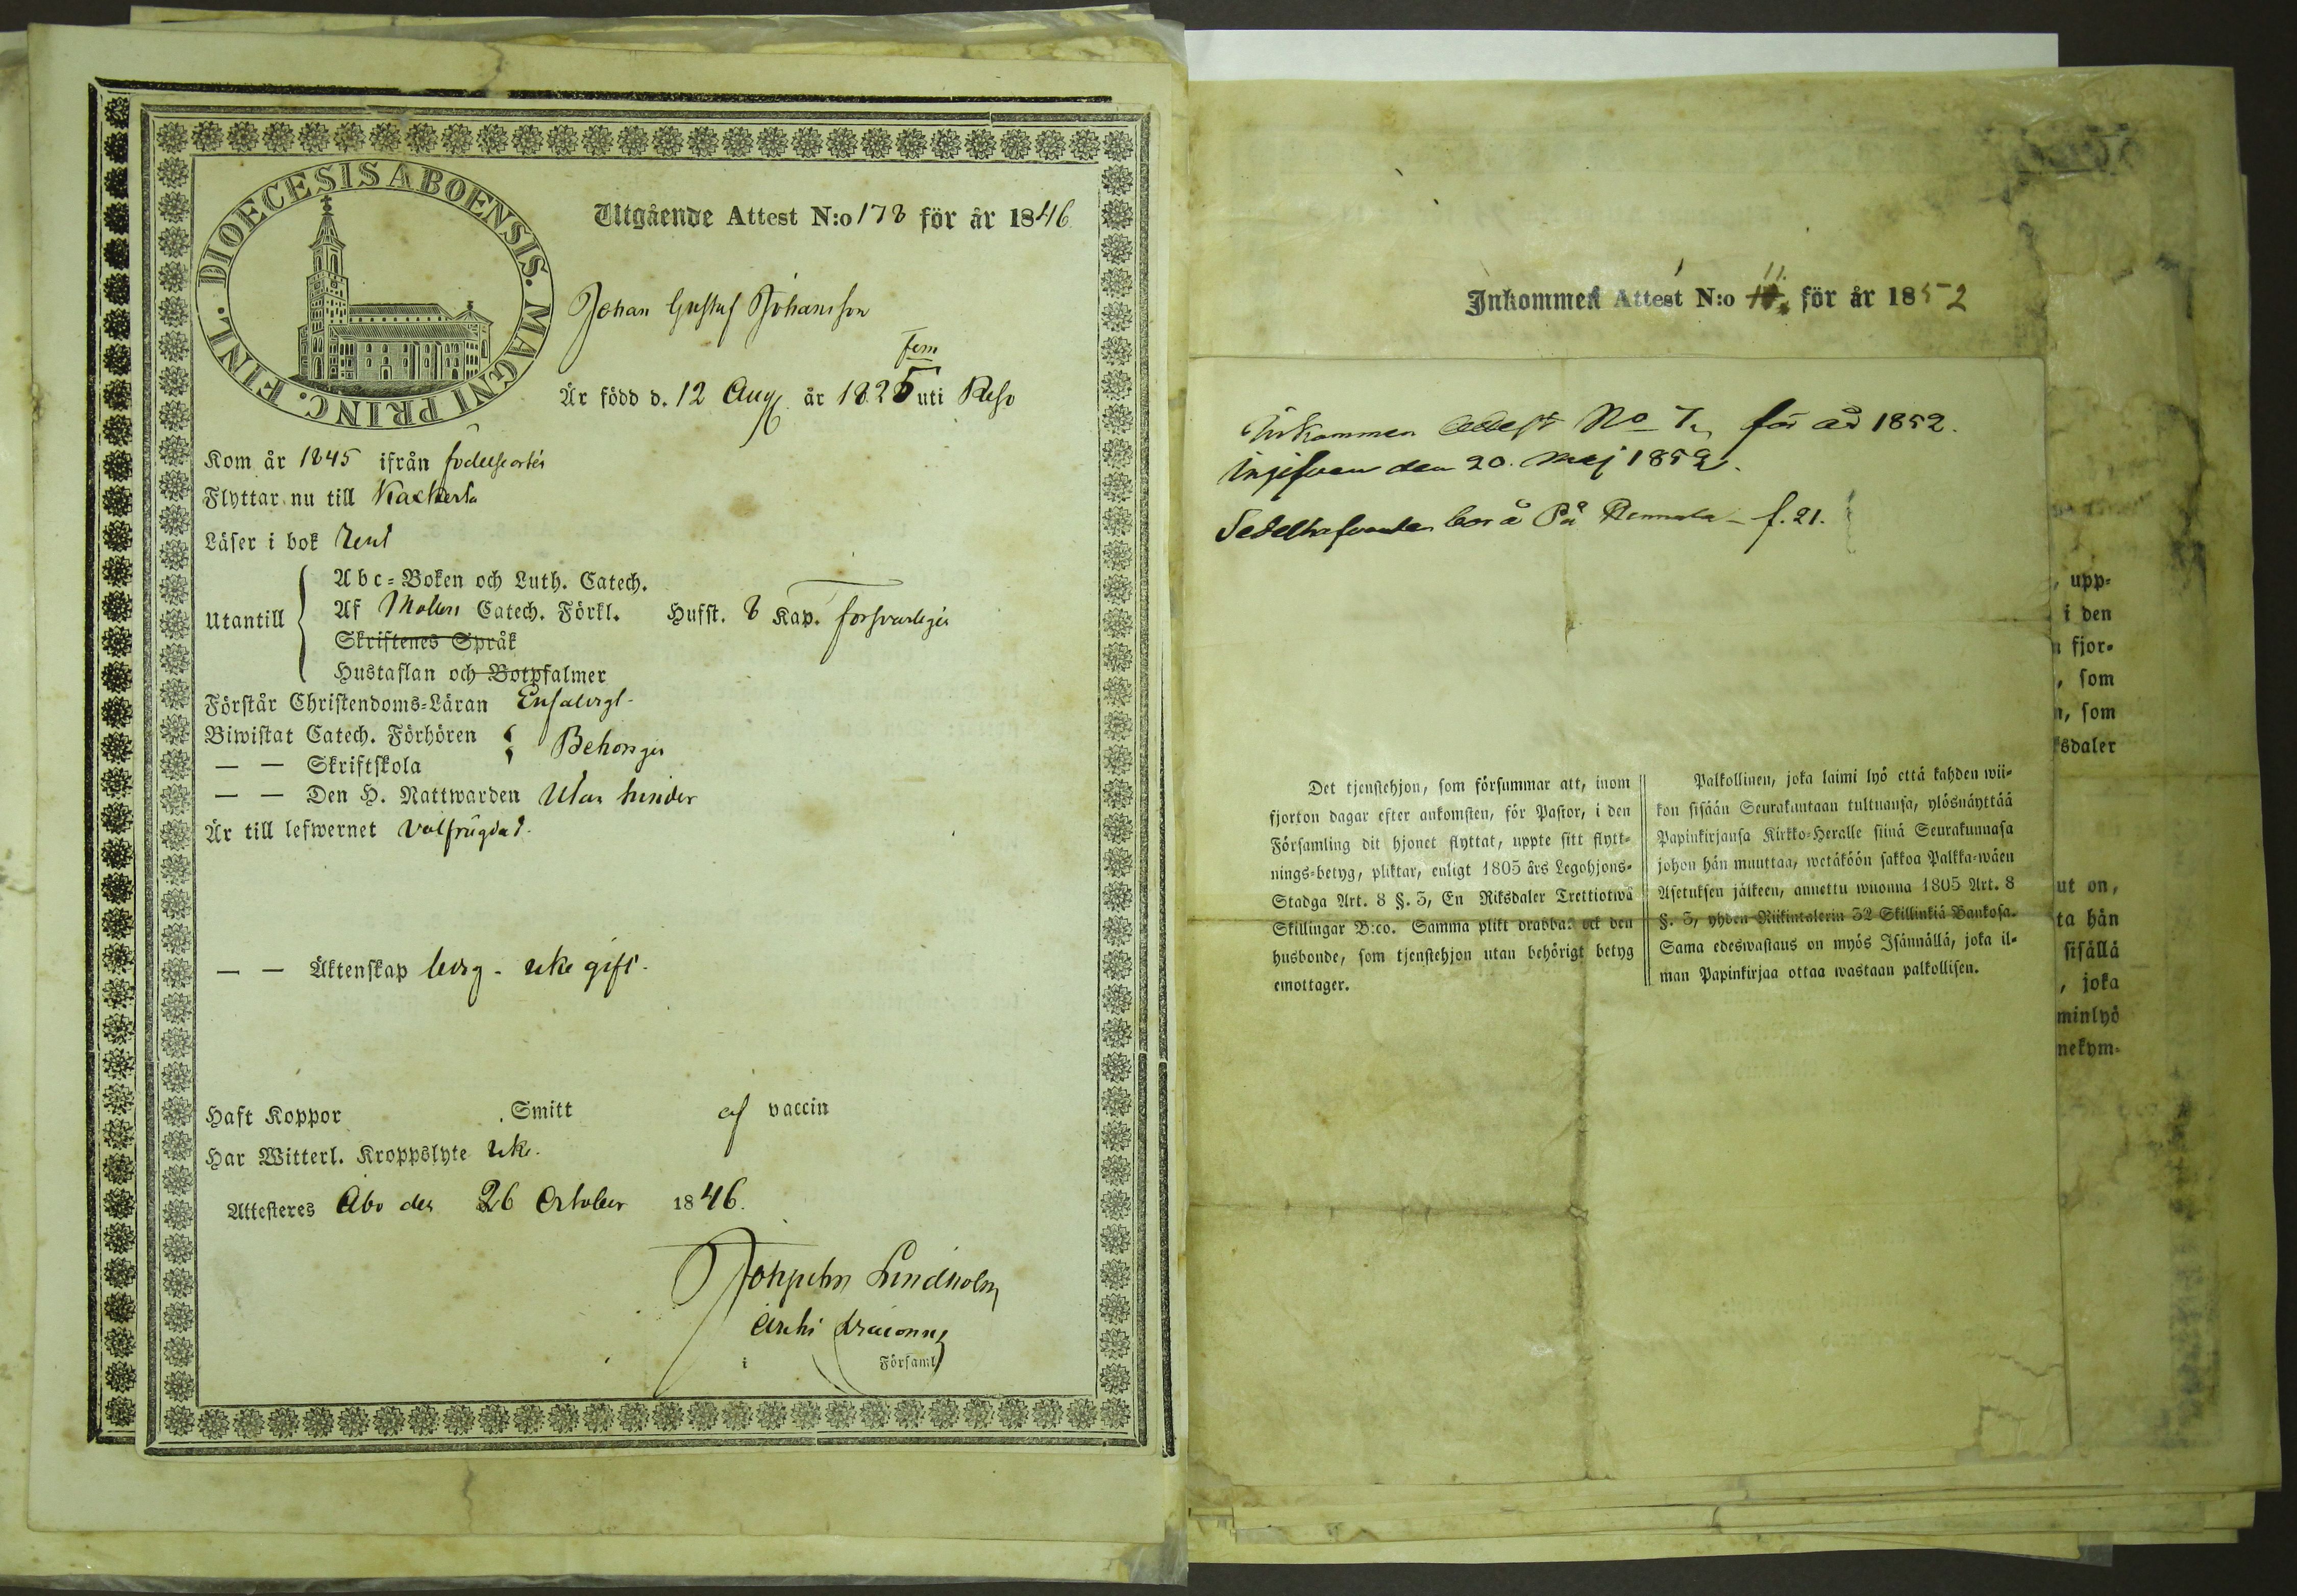 DIOECESIS ABOENSIS. MAGNI PRINC. FINL.
Utgående Attest N:o 178 för år 1846
Johan Gustaf Johansson
Fem
Är född d. 12 Aug. år 1825 uti Reso
Kom år 1845 ifrån födelseorten
Flyttar nu till Kackerta
Läser i bok rent
Utantill
Abc-Boken och Luth. Catech.
Af Möllers Catech. Förkl. Hufst. 8 Kap. försvarligen
Skriftenes Språk
Hustaflan och Botpsalmer
Förstår Christendoms-Läran Enfaldigt
Biwistat Catech. Förhören
— — Skriftskola Behörigen
— — Den H. Nattwarden Utan hinder
Är till lefwernet välfrägdad.
— — Äktenskap ledig - icke gift.
Haft Koppor Smitt af vaccin
Har Witterl. Kroppslyte icke.
Attesteres Åbo den 26 October 1846.
Lindholm
Archi Diaconus
i Församl.
Inkommen Attest N:o 11. för år 1852
Inkommen Attest No 7 för år 1852.
Ingifven den 20. Maj 1852.
Sedelhafvanden bor å På f. 21.
Det tjenstehjon, som försummar att, inom
fjorton dagar efter ankomsten, för Pastor, i den
Församling dit hjonet flyttat, uppte sitt flytt-
nings-betyg, pliktar, enligt 1805 års Legohjons-
Stadga Art. 8 §. 3, En Riksdaler Trettiotwå
Skillingar B:co. Samma plikt drabbar ock den
husbonde, som tjenstehjon utan behörigt betyg
emottager.
Palkollinen, joka laimi lyö että kahden wii-
kon sisään Seurakuntaan tultuansa, ylösnäyttää
Papinkirjansa Kirkko-Heralle siinä Seurakunnasa
johon hän muuttaa, wetäköön sakkoa Palkka-wäen
Asetuksen jälkeen, annettu wuonna 1805 Art. 8
§. 3, yhden Riikintalerin 32 Skillinkiä Bankosa.
Sama edeswastaus on myös Isännällä, joka il-
man Papinkirjaa ottaa wastaan palkollisen.
, upp-
i den
n fjor-
, som
n, som
ksdaler
ut on,
ta hän
sisällä
, joka
minlyö
nekym-